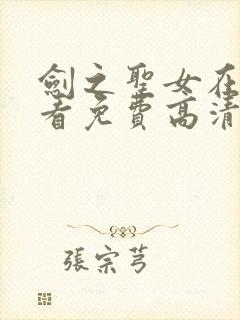 劍之聖女在
看免費高清
張宗芎